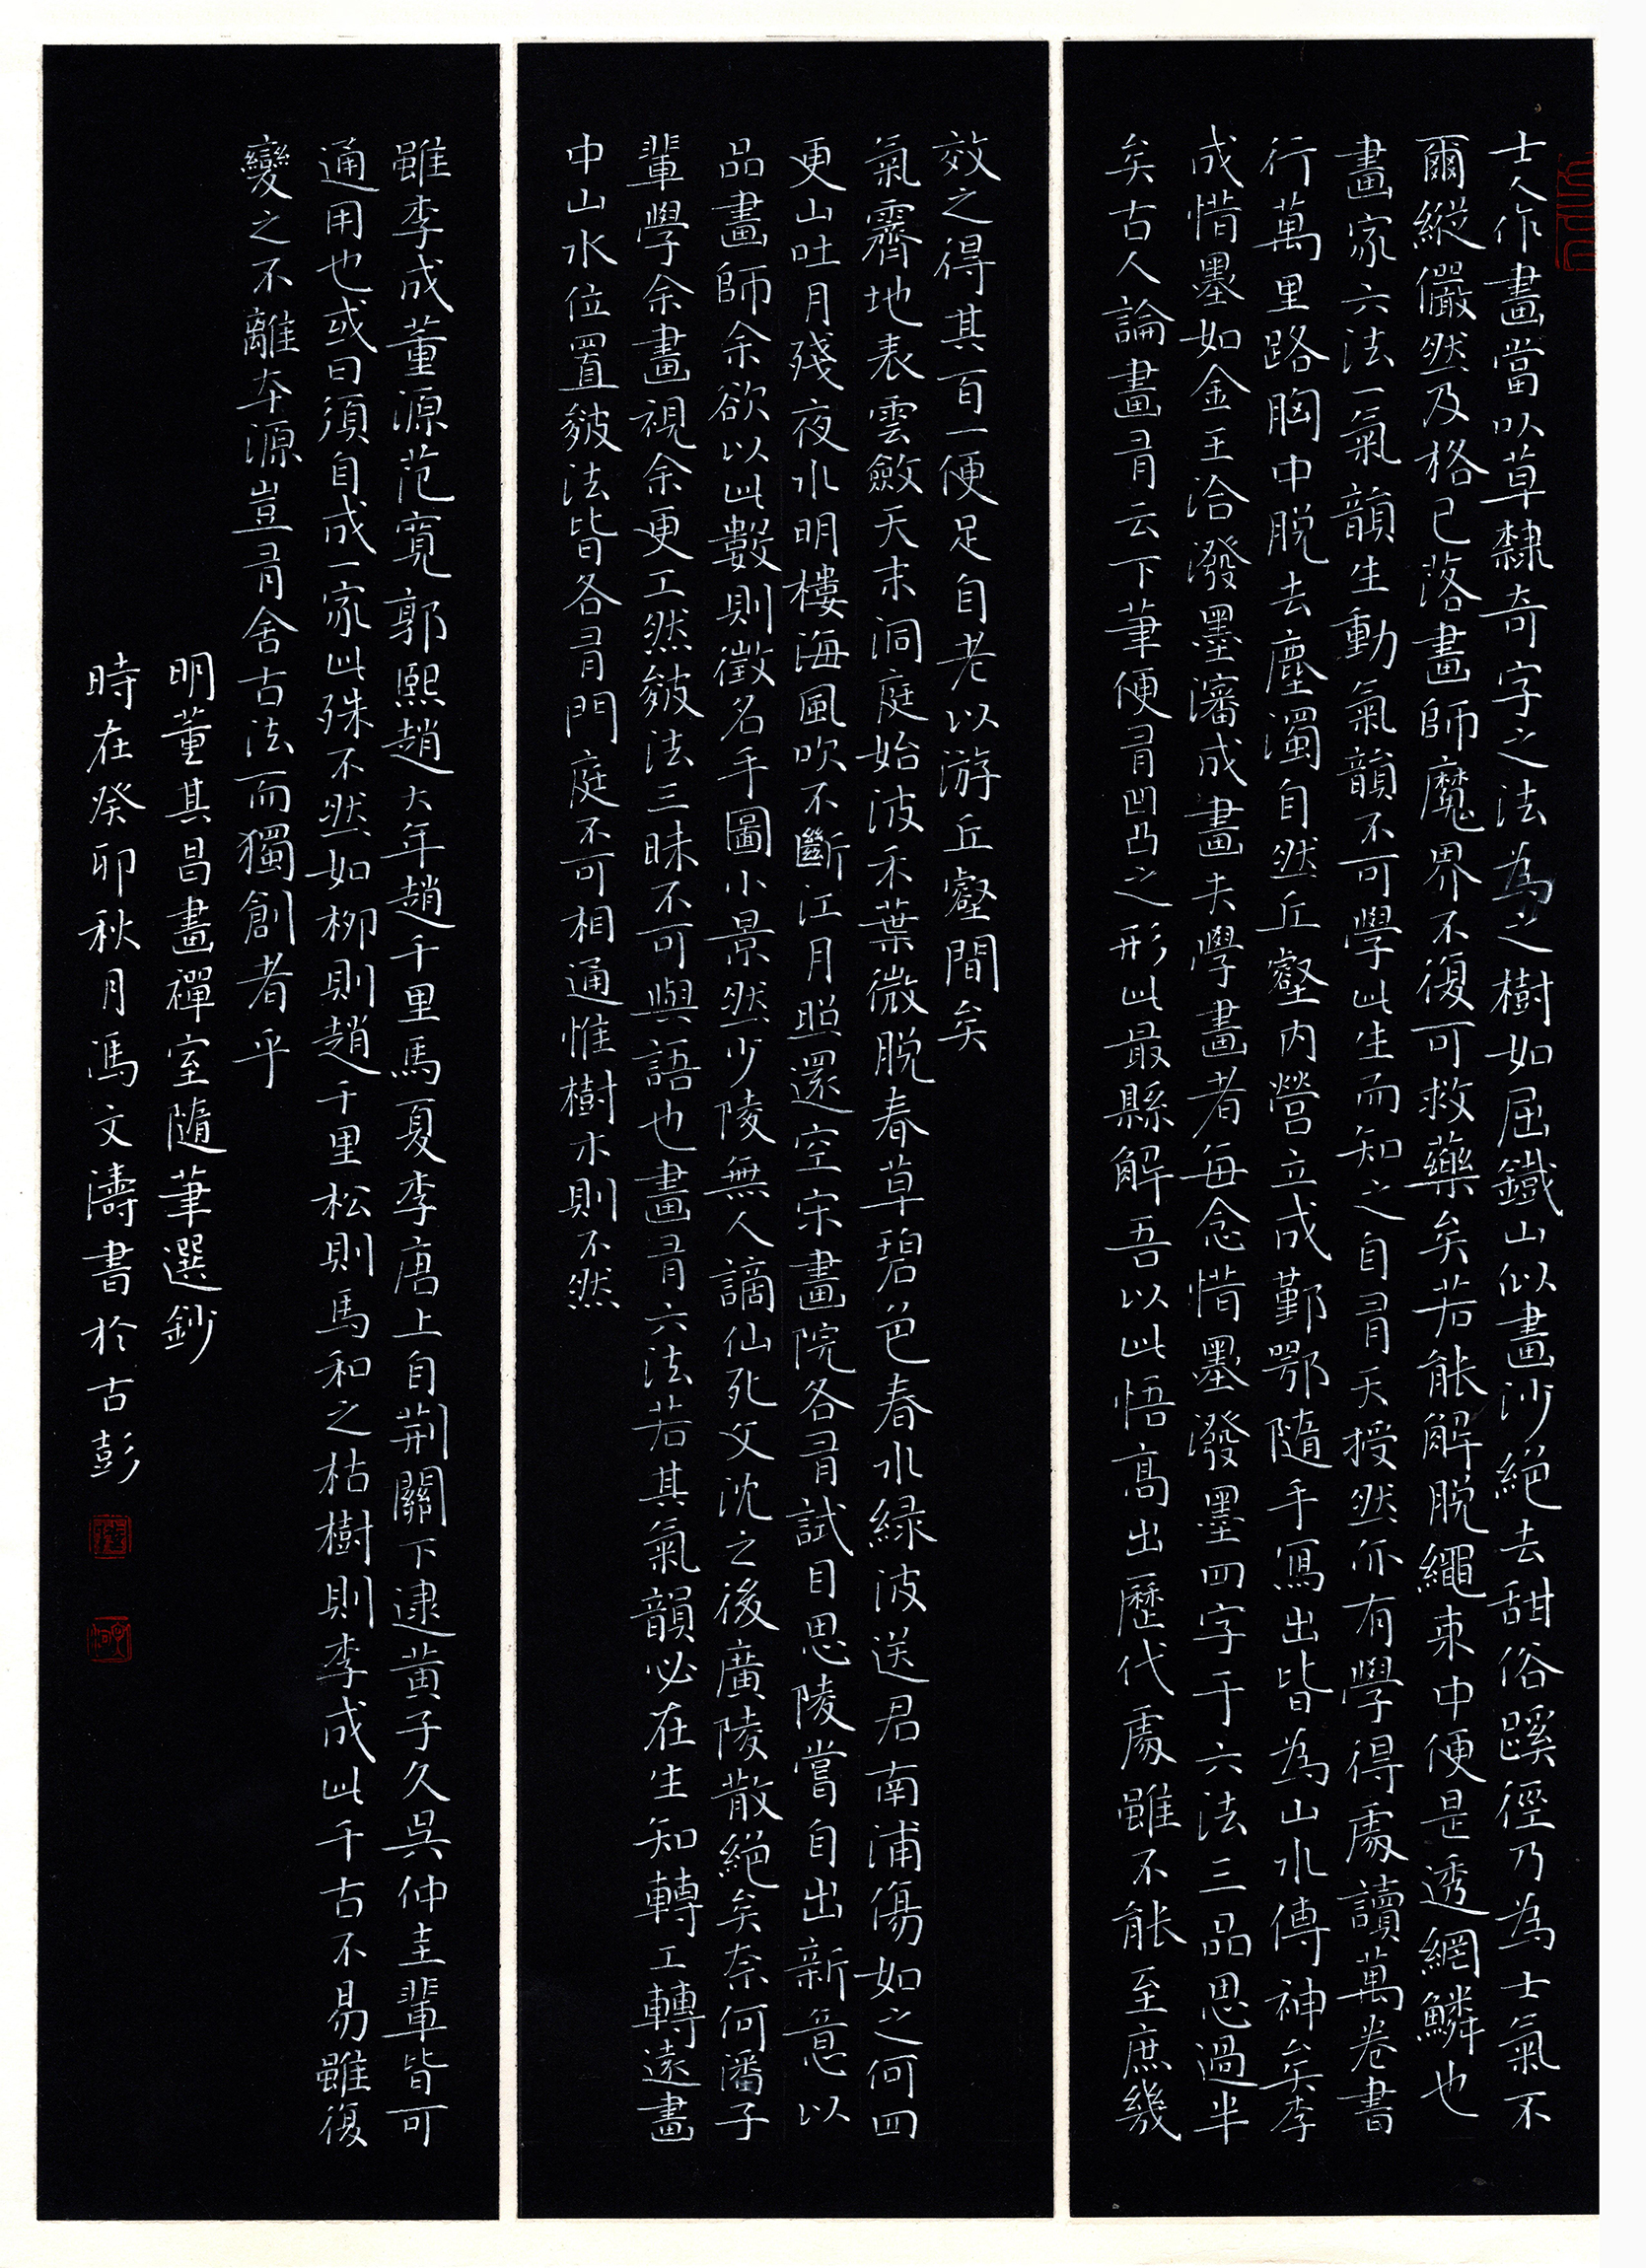 士人作畫當以草隸奇字之法為之樹如屈鐵山似畫沙絕去甜俗蹊徑乃為士氣不
爾縱儼然及格已落畫師魔界不復可救藥矣若能解脫繩束中便是透網鱗也
畫家六法一氣韻生動氣韻不可學此生而知之自有天授然亦有學得處讀萬卷書
行萬里路胸中脫去塵濁自然丘壑內營立成鄞鄂隨手寫出皆為山水傳神矣李
成惜墨如金王洽潑墨瀋成畫夫學畫者每念惜墨潑墨四字于六法三品思過半
矣古人論畫有云下筆便有凹凸之形此最縣解吾以此悟高出歷代處雖不能至庶幾
效之得其百一便足自老以游丘壑間矣
氣霽地表雲斂天末洞庭始波禾葉微脫春草碧色春水綠波送君南浦傷如之何四
更山吐月殘夜水明樓海風吹不斷江月照還空宋畫院各有試目思陵嘗自出新意以
品畫師余欲以此數則徵名手圖小景然少陵無人謫仙死文沈之後廣陵散絕矣奈何潘子
輩學余畫視余更工然皴法三昧不可與語也畫有六法若其氣韻必在生知轉工轉遠畫
中山水位置皴法皆各有門庭不可相通惟樹木則不然
雖李成董源范寬郭熙趙大年趙千里馬夏李唐上自荊關下逮黃子久吳仲圭輩皆可
通用也或曰須自成一家此殊不然如柳則趙千里松則馬和之枯樹則李成此千古不易雖復
變之不離本源豈有舍古法而獨創者乎
明董其昌畫禪室隨筆選鈔
時在癸卯秋月馮文濤書於古彭